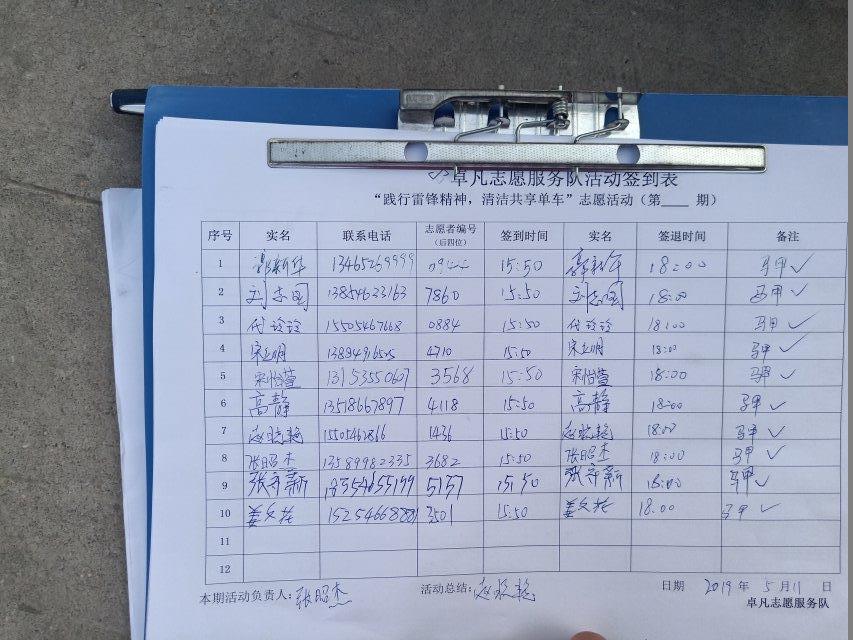 卓凡志愿服务队活动签到表
“践行雷锋精神，清洁共享单车”志愿活动（第____期）
序号 实名 联系电话 志愿者编号（后四位） 签到时间 实名 签退时间 备注
1 郭新华 13465269999 15:50 郭新华 18:00 马甲 ✓
2 刘志国 13854623163 7860 15:50 刘志国 18:00 马甲 ✓
3 付玲玲 15505467668 0884 15:50 付玲玲 18:00 马甲 ✓
4 宋立明 4710 15:50 宋立明 18:00 马甲 ✓
5 宋怡萱 13153550607 3568 15:50 宋怡萱 18:00 马甲 ✓
6 高静 13518667897 4118 15:50 高静 18:00 马甲 ✓
7 赵晓艳 15505462866 1436 15:50 赵晓艳 18:00 马甲 ✓
8 张昭杰 13589982335 3682 15:50 张昭杰 18:00 马甲 ✓
9 张守新 18354655199 5157 15:50 张守新 18:00 马甲 ✓
10 姜文花 3501 15:50 姜文花 18:00 马甲 ✓
11
12
本期活动负责人：张昭杰 活动总结：赵晓艳 日期 2019 年 5 月 11 日
卓凡志愿服务队